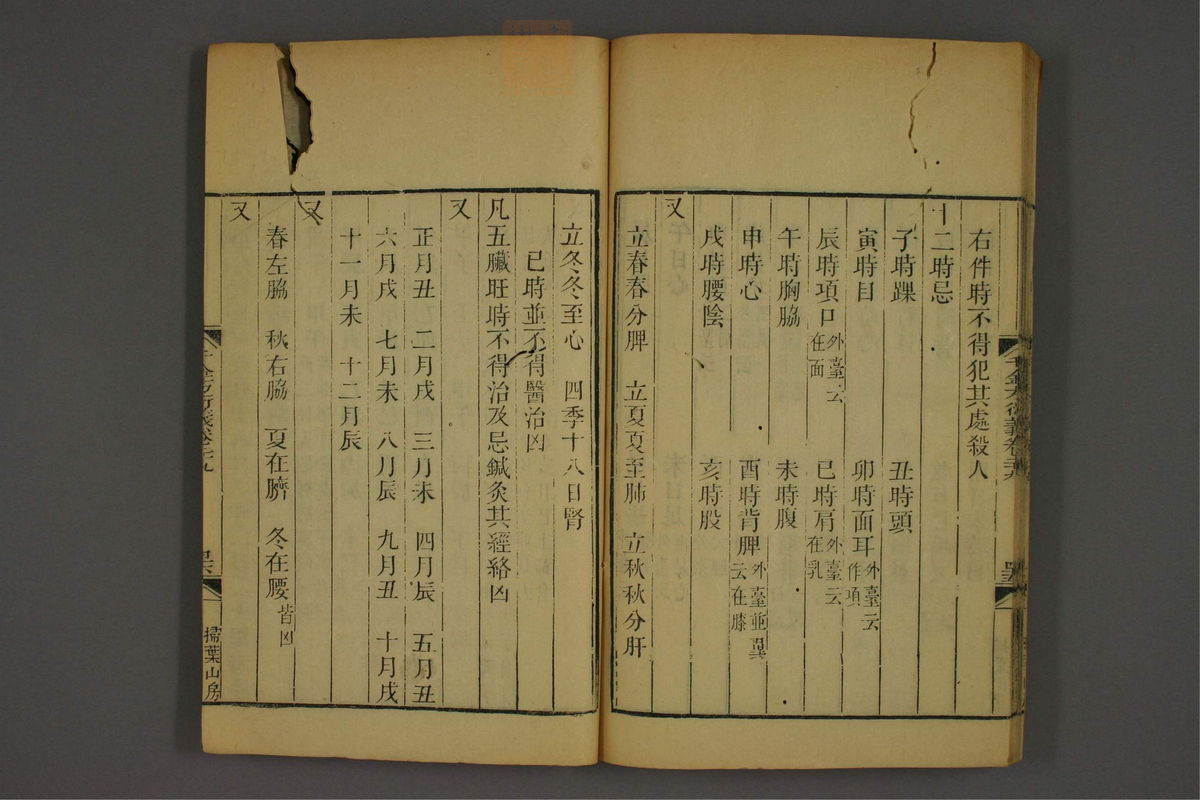 右件時不得犯其處殺人
十二時忌
子時踝 丑時頭
寅時目 卯時面耳外臺云作項
辰時項口外臺云在面 巳時肩外臺云在乳
午時胸脇 未時腹
申時心 酉時背脾外臺並巽云在膝
戌時腰陰 亥時股
又
立春春分脾 立夏夏至肺 立秋秋分肝
立冬冬至心 四季十八日腎
已時並不得醫治凶
凡五臟旺時不得治及忌鍼灸其經絡凶
又
正月丑 二月戌 三月未 四月辰 五月丑
六月戌 七月未 八月辰 九月丑 十月戌
十一月未 十二月辰
又
春左脇 秋右脇 夏在臍 冬在腰皆凶
又
掃葉山房